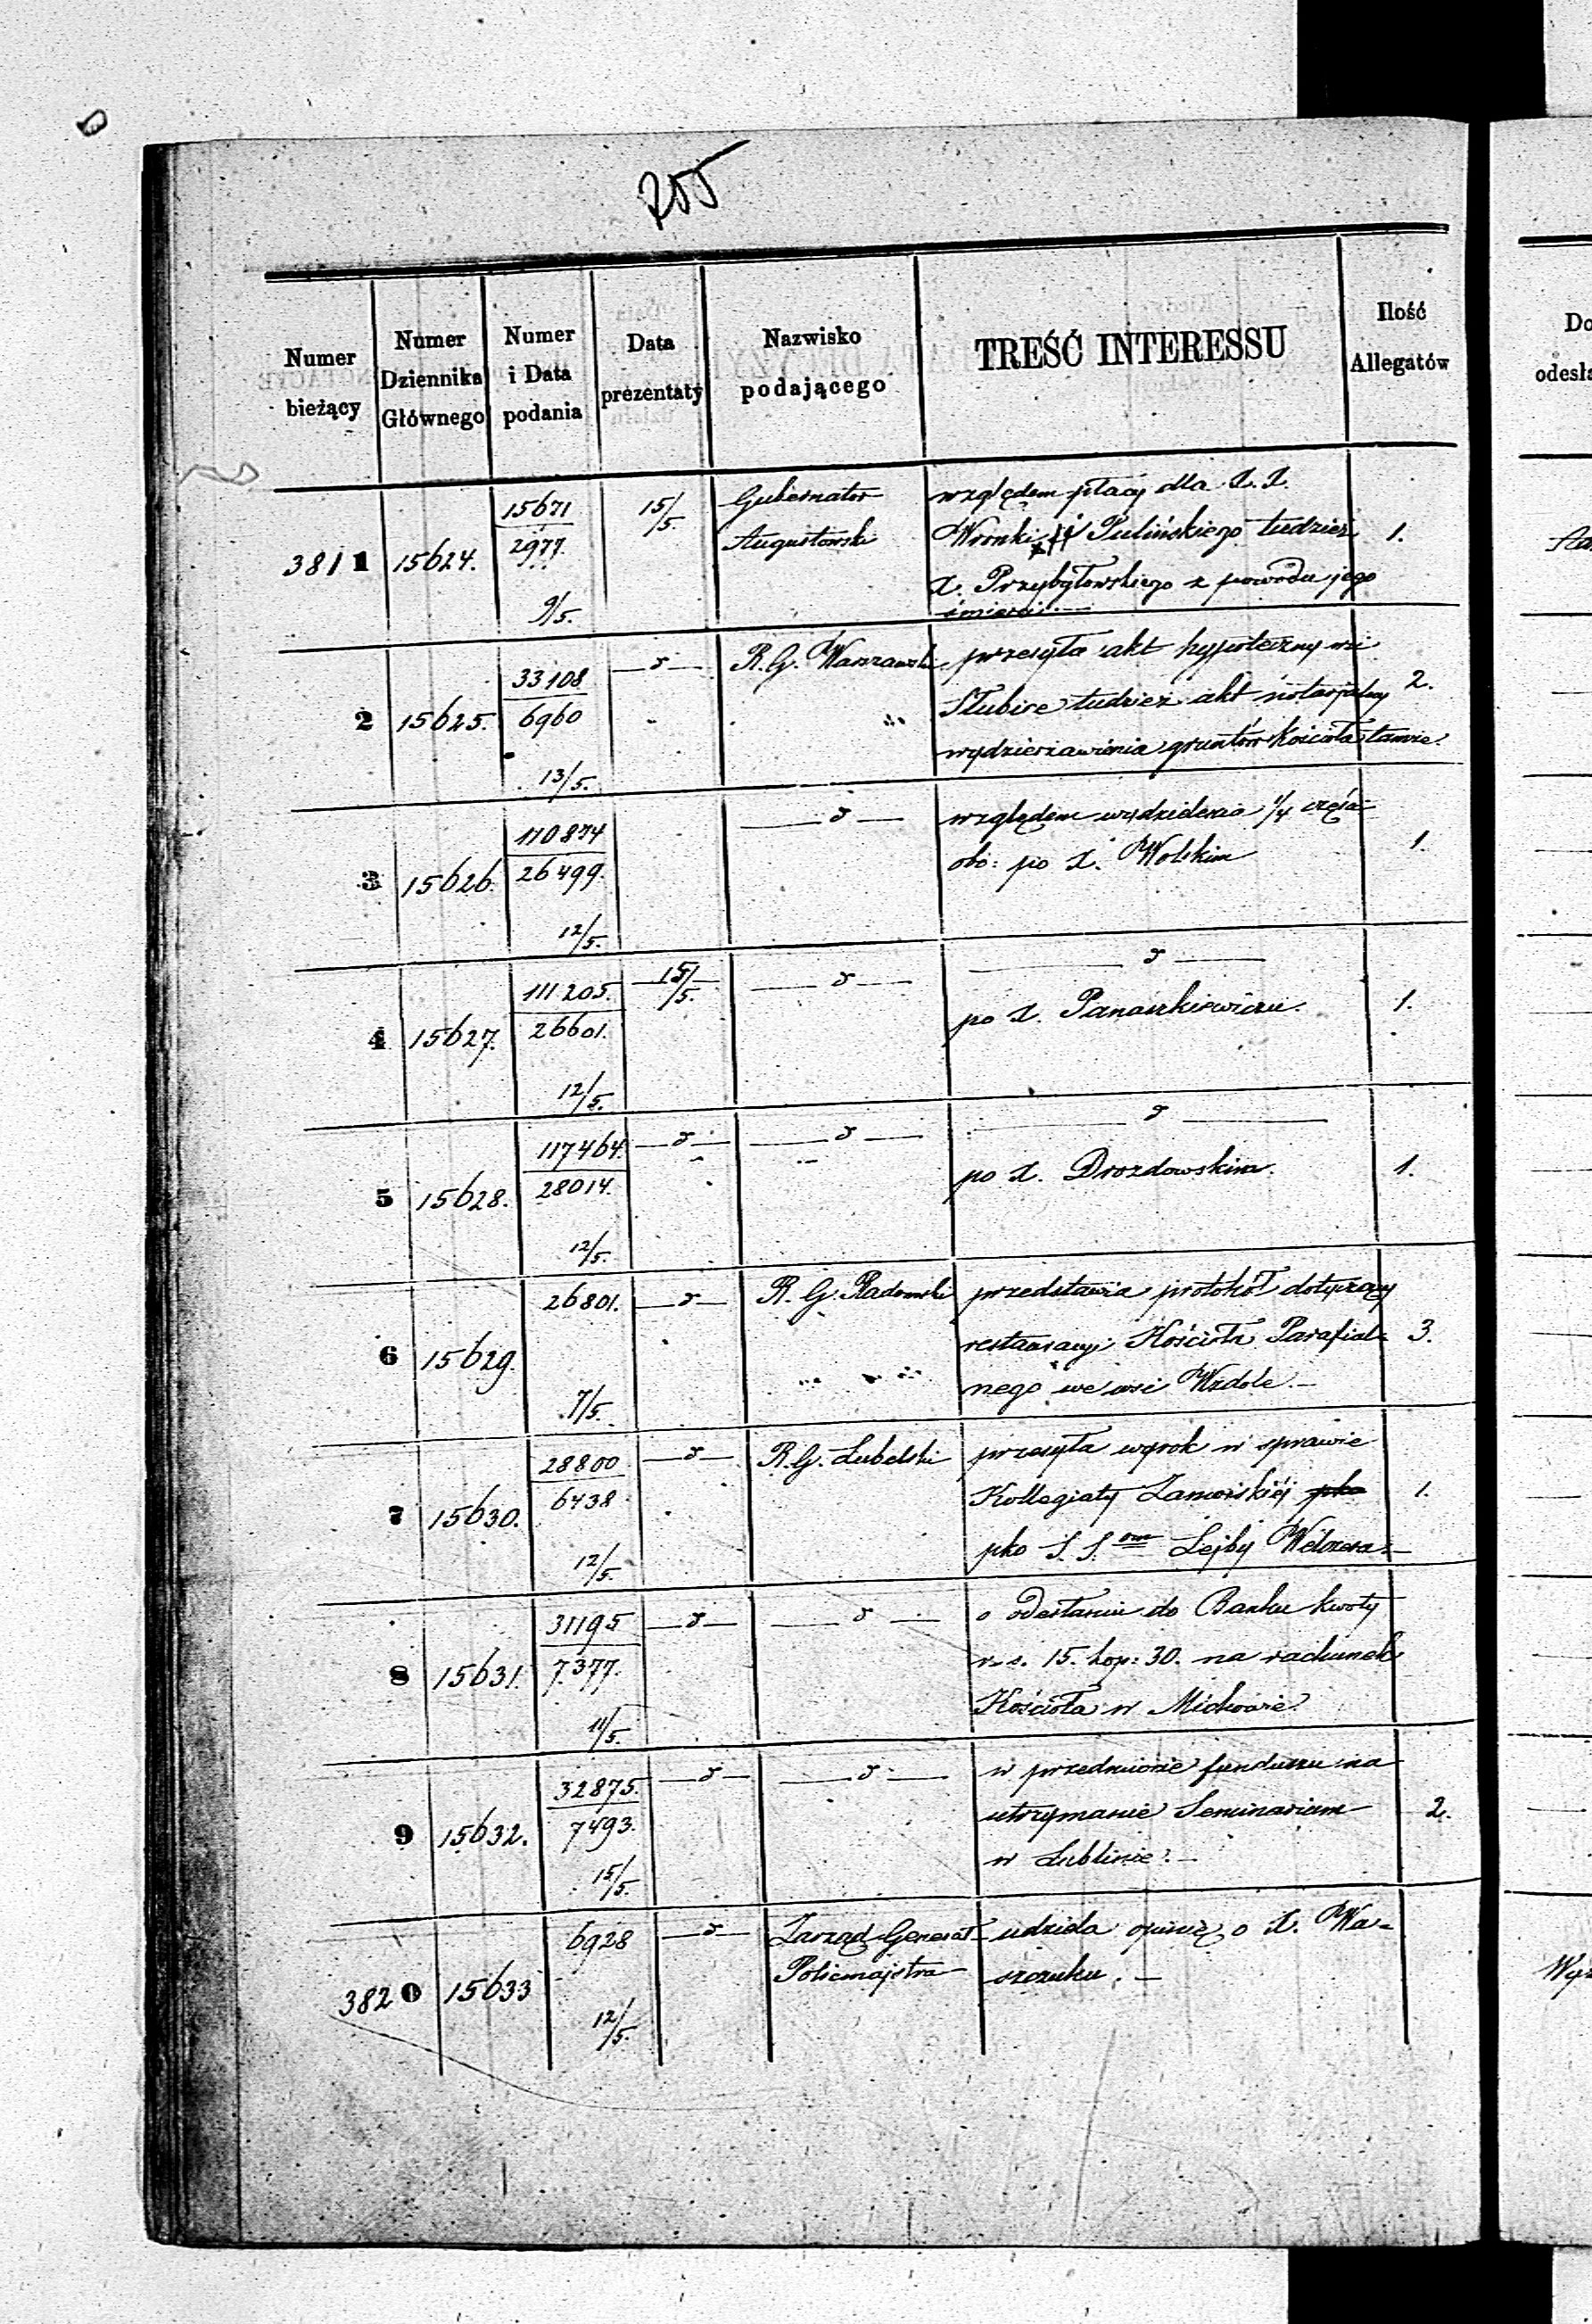 255
Numer bieżący
Numer Dziennika Głównego
Numer i Data podania
Data prezentaty
Nazwisko podającego
TREŚĆ INTERESSU
Ilość Allegatów
3811 15624. 15671 2977. 9/5. 15/5. Gubernator Augustowski
względem płacy dla X. X.
Wronki i Pulińskiego tudzież 1.
X. Przybyłowskiego z powodu jego
śmierci.—
2 15625. 33108 6960 13/5. —d— R. G. Warszawski
przesyła akt hypoteczny wsi
Słubice tudzież akt notarjalny 2.
wydzierżawienia gruntów Kościoła tamże.
3 15626. 110874 26499. 12/5. —d—
względem wydzielenia 1/4 części
obo: po X. Wolskim 1.
4 15627. 111205. 26601. 12/5. 15/5. —d— —d—
po X. Panaszkiewiczu. 1.
5 15628. 117464. 28014. 12/5. —d— —d— —d—
po X. Drozdowskim. 1.
6 15629. 26801. 7/5. —d— R. G. Radomski
przedstawia protokół dotyczący
restauracyi Kościoła Parafial= 3.
nego we wsi Wzdole.—
7 15630. 28800 6438 12/5. —d— R. G. Lubelski
przesyła wyrok w sprawie
Kollegiaty Zamojskiéj pko 1.
pko S. S. om Lejby
8 15631. 31195 7377. 11/5. —d— —d—
o odesłaniu do Banku kwoty
r. s. 15. kop: 30. na rachunek
Kościoła w
9 15632. 32875. 7493. 15/5. —d— —d—
w przedmiocie funduszu na
utrzymanie Seminarium 2.
w Lublinie.—
3820 15633 6928 12/5. —d— Zarząd Generał Policmajstra
udziela opinię o X. Wa=
szczuku.—
Do
odesła